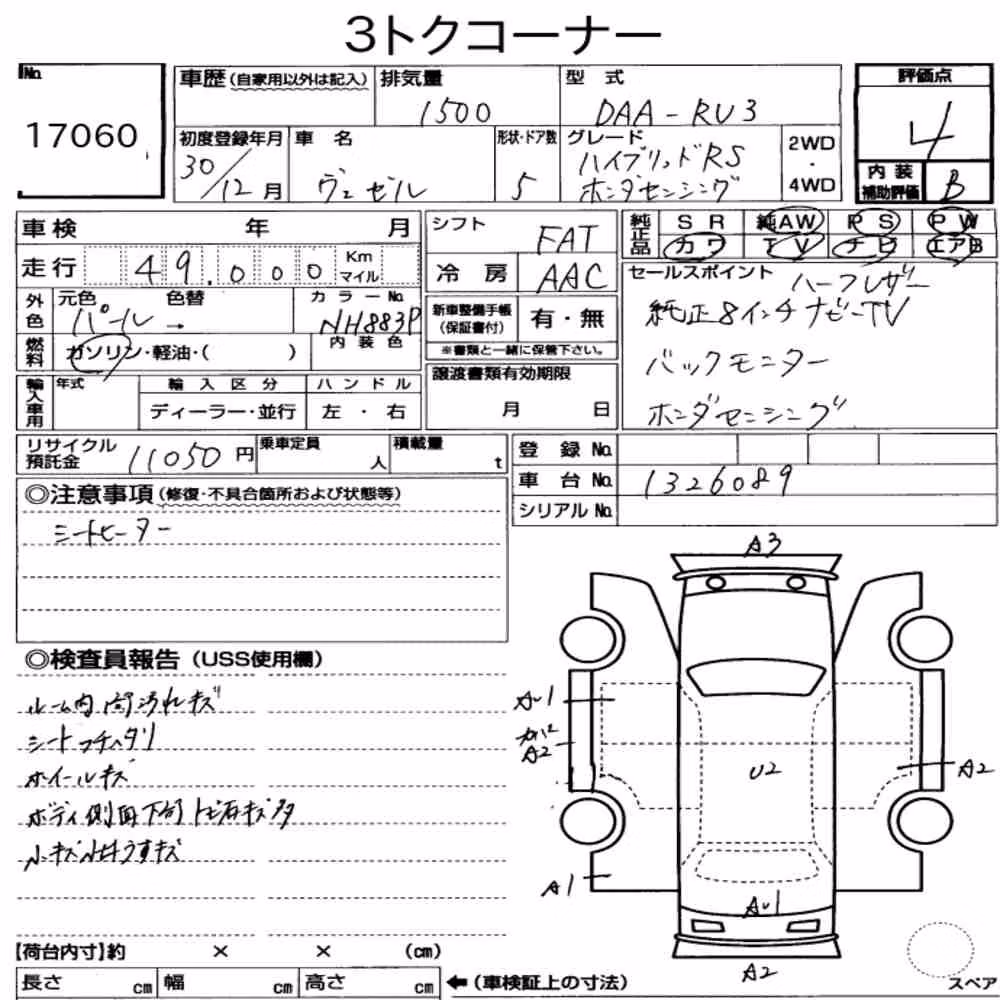 3トクコーナー
No.
17060
車歴 (自家用以外は記入)
排気量
1500
型 式
DAA-RU3
評価点
4
初度登録年月
30/12月
車 名
ヴェゼル
形状・ドア数
5
グレード
ハイブリッドRS
ホンダセンシング
2WD
・
4WD
内装
補助評価
B
車検 年 月
走行 49.000 Km マイル
シフト
FAT
冷 房
AAC
純正品
SR 純AW PS PW
カワ TV ナビ エアB
セールスポイント
ハーフレザー
純正8インチナビーTV
バックモニター
ホンダセンシング
外色
元色 色替
パール →
カラーNo.
NH883P
内装色
燃料
ガソリン・軽油・( )
新車整備手帳
(保証書付)
有・無
※書類と一緒に保管下さい。
譲渡書類有効期限
月 日
輸入車用
年式
輸入区分
ディーラー・並行
ハンドル
左・右
リサイクル
預託金
11050円
乗車定員
人
積載量
t
登 録 No.
車 台 No.
1326089
シリアル No.
◎注意事項 (修復・不具合箇所および状態等)
シートヒーター
◎検査員報告 (USS使用欄)
ルーム内 汚れキズ
シートフチヘタリ
ホイールキズ
ボディ側面下部トビ石キズ多
小キズ うすキズ
A3
AU1
カバー
A2
U2
A2
A1
AU1
A2
【荷台内寸】約 × × (cm)
長さ cm 幅 cm 高さ cm
←(車検証上の寸法)
スペア